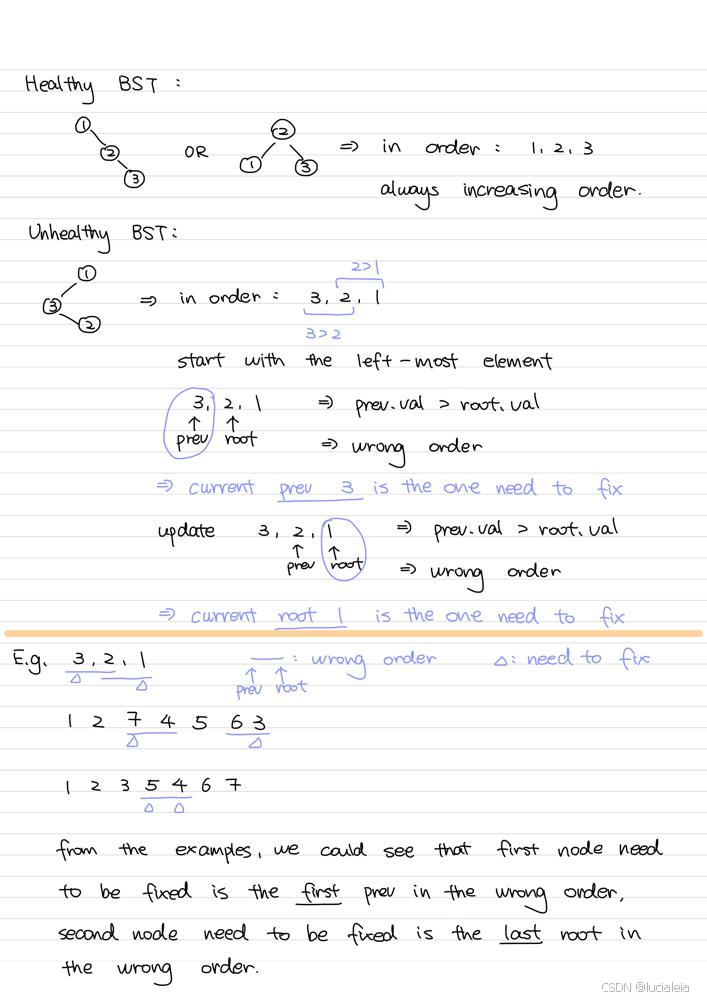 Healthy BST :
1 2 3 OR 2 1 3 ⇒ in order : 1, 2, 3
always increasing order.
Unhealthy BST :
2>1
1 3 2 ⇒ in order : 3, 2, 1
3>2
start with the left-most element
3, 2, 1 ⇒ prev.val > root.val
↑ ↑
prev root ⇒ wrong order
⇒ current prev 3 is the one need to fix
update 3, 2, 1 ⇒ prev.val > root.val
↑ ↑
prev root ⇒ wrong order
⇒ current root 1 is the one need to fix
E.g. 3, 2, 1 __ : wrong order △: need to fix
△ △ ↑ ↑
prev root
1 2 7 4 5 6 3
△ △
1 2 3 5 4 6 7
△ △
from the examples, we could see that first node need
to be fixed is the first prev in the wrong order,
second node need to be fixed is the last root in
the wrong order.
CSDN @lucialeia